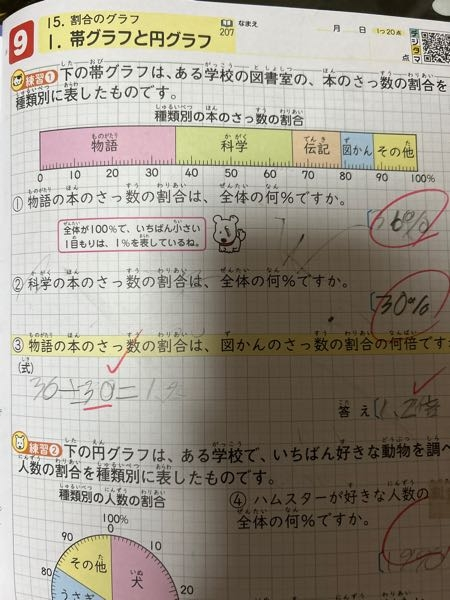 9
15. 割合のグラフ
1. 帯グラフと円グラフ
207
なまえ
月 日
1つ20点
点
デジタマ
練習① 下の帯グラフは、ある学校の図書室の、本のさっ数の割合を
種類別に表したものです。
種類別の本のさっ数の割合
物語 科学 伝記 図かん その他
0 10 20 30 40 50 60 70 80 90 100%
① 物語の本のさっ数の割合は、全体の何%ですか。
全体が100%で、いちばん小さい
1目もりは、1%を表しているね。
② 科学の本のさっ数の割合は、全体の何%ですか。
30%
③ 物語の本のさっ数の割合は、図かんのさっ数の割合の何倍です
(式)
36÷30=1.2
答え
1.2倍
練習② 下の円グラフは、ある学校で、いちばん好きな動物を調べ
人数の割合を種類別に表したものです。
種類別の人数の割合
④ ハムスターが好きな人数の
全体の何%ですか。
100%
0
90
80
10
20
その他
犬
うさぎ